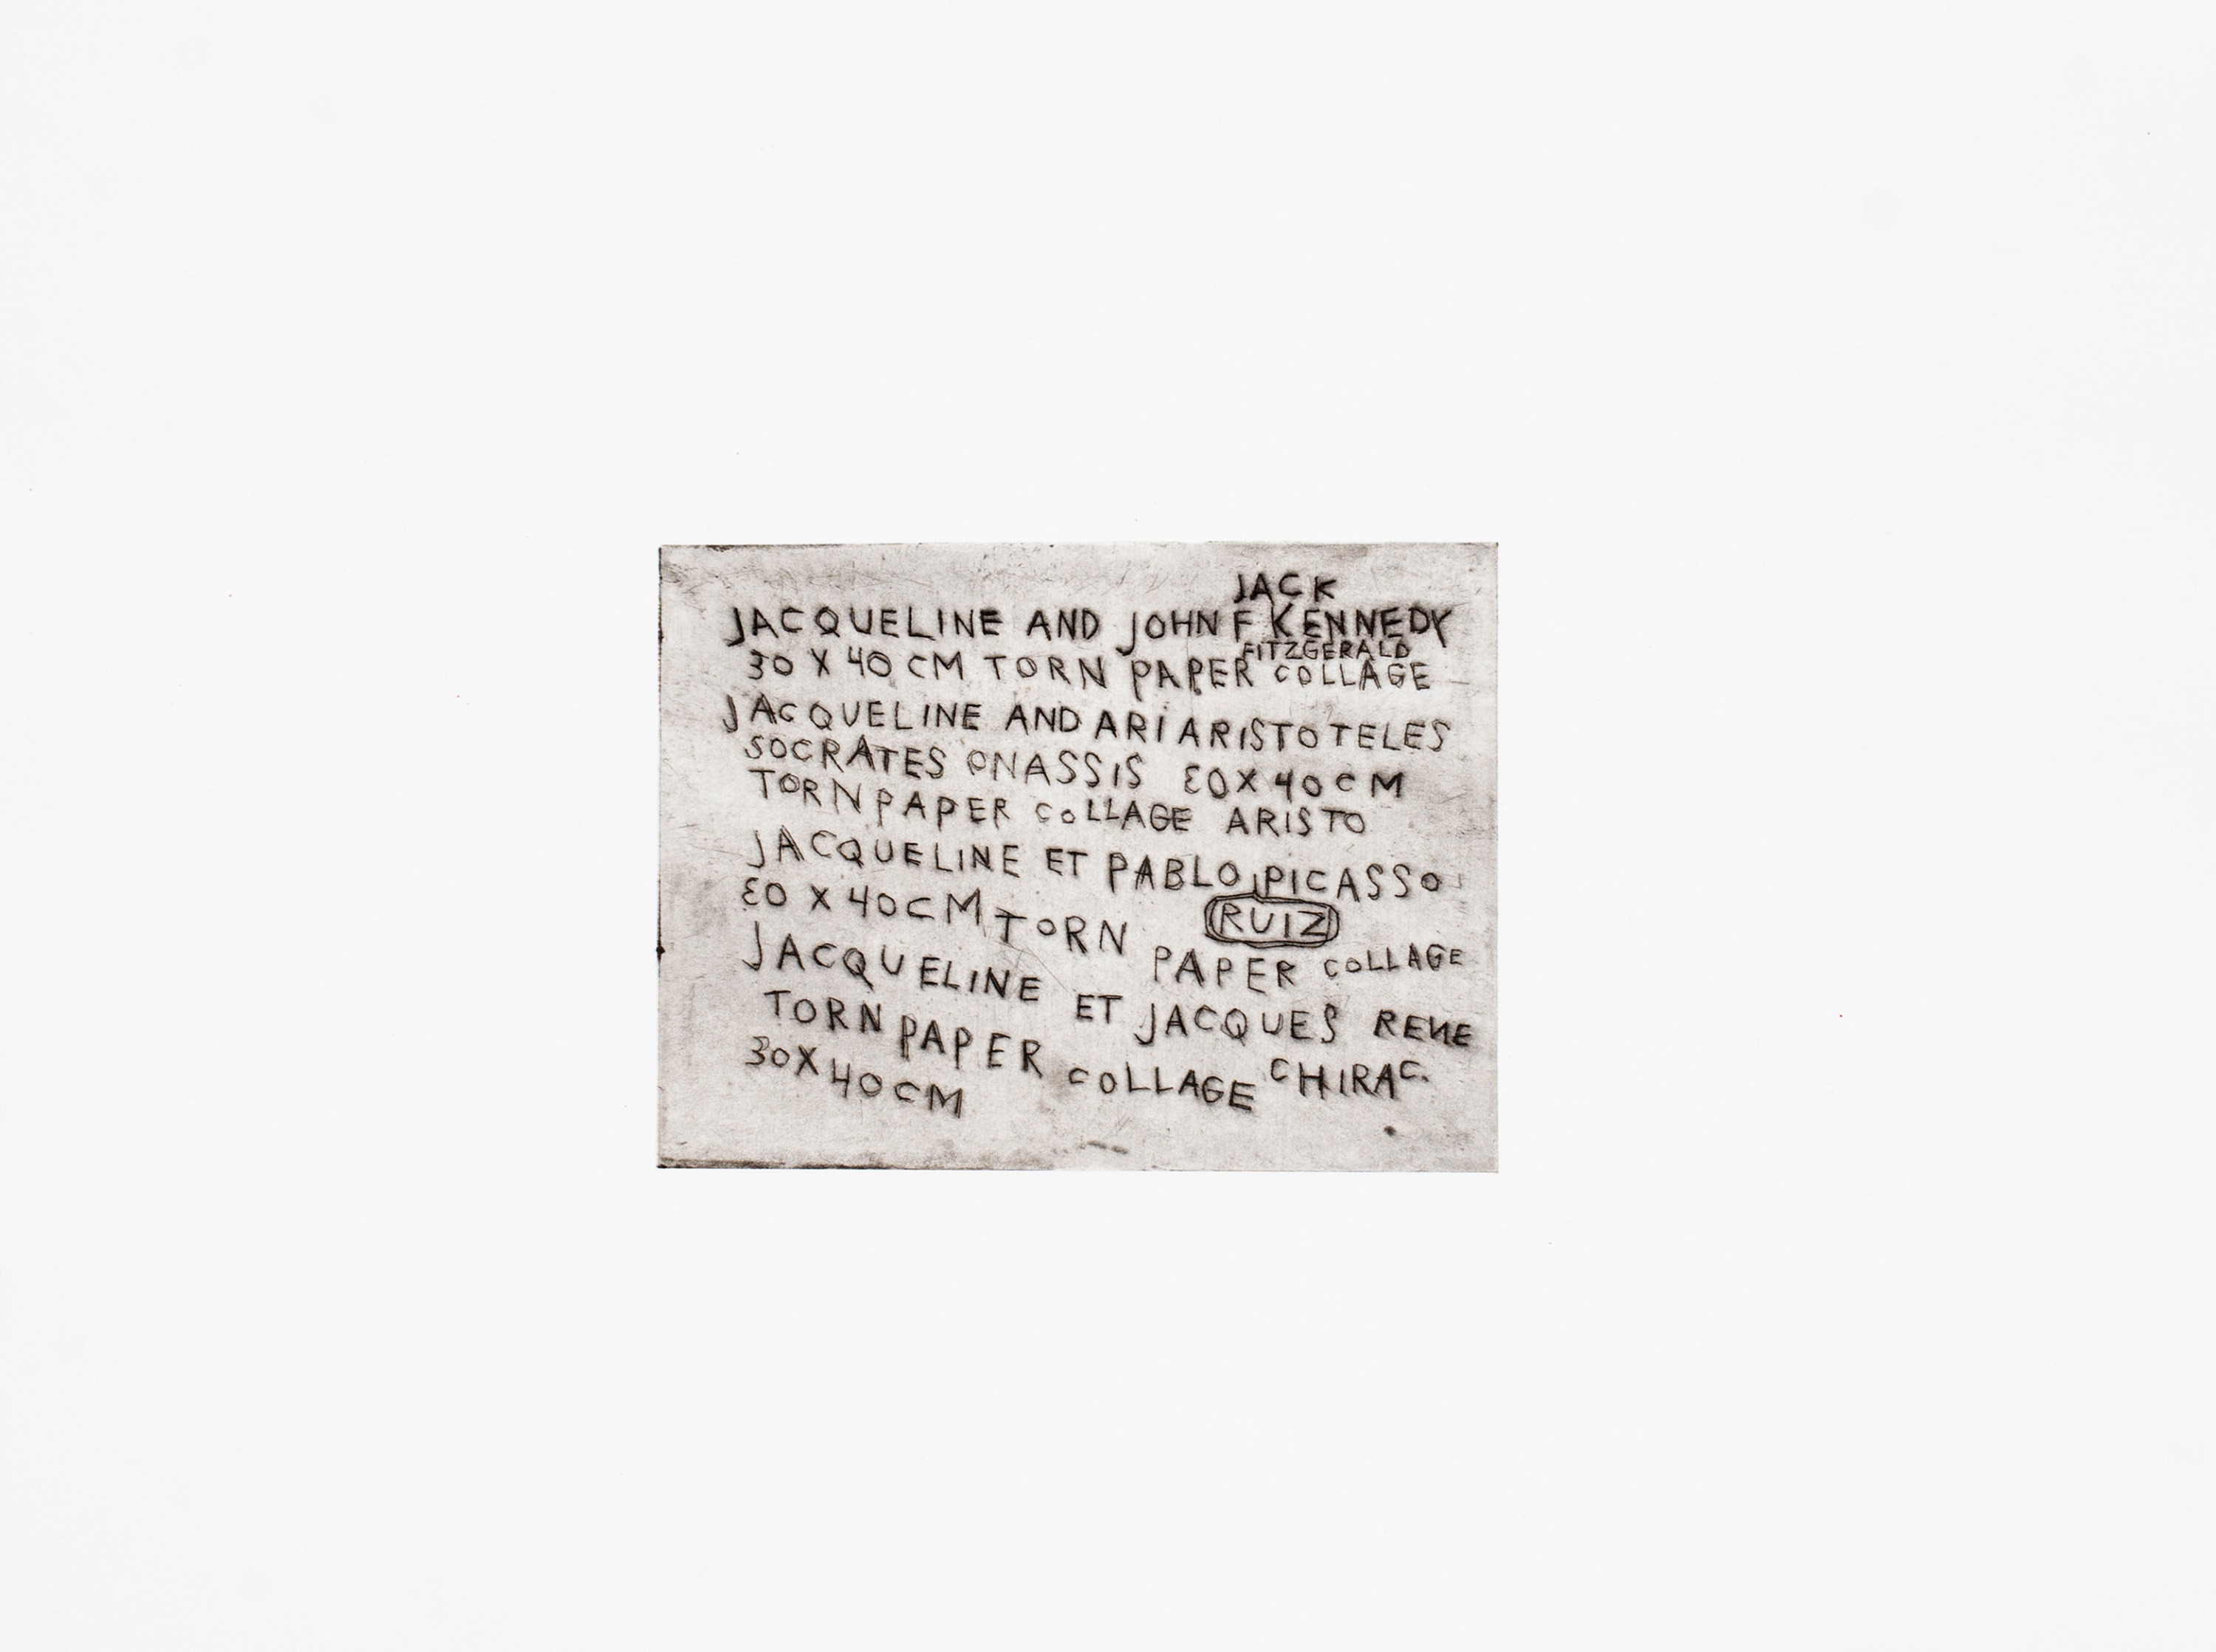 JACK
JACQUELINE AND JOHN F KENNEDY
FITZGERALD
30 X 40 CM TORN PAPER COLLAGE
JACQUELINE AND ARI ARISTOTELES
SOCRATES ONASSIS 30X40CM
TORN PAPER COLLAGE ARISTO
JACQUELINE ET PABLO PICASSO
RUIZ
30 X 40CM TORN PAPER COLLAGE
JACQUELINE ET JACQUES RENE
CHIRAC.
TORN PAPER COLLAGE
30X40CM